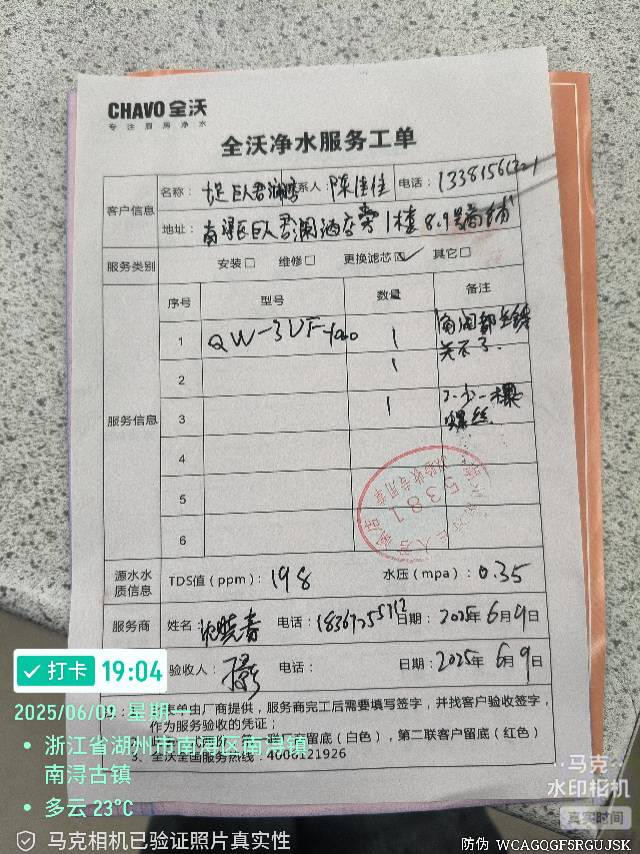 CHAVO 全沃
专注厨房净水
全沃净水服务工单
客户信息
名称： 巨人君澜 联系人：陈佳佳 电话：
地址： 南浔区巨人君澜酒店旁1楼8.9号商铺
服务类别 安装□ 维修□ 更换滤芯☑ 其它□
服务信息
序号 型号 数量 备注
1 QW-3UF-400 1 角阀都生锈
关不了.
2 1
3 1 2.少一根
螺丝
4
5
6
5381
源水水质信息 TDS值（ppm）：198 水压（mpa）：0.35
服务商 姓名：沈晓青 电话： 日期：2025年6月9日
验收人： 电话： 日期：2025年6月9日
单由厂商提供，服务商完工后需要填写签字，并找客户验收签字，
作为服务验收的凭证；
留底（白色），第二联客户留底（红色）
3、全沃全国服务热线：4006121926
打卡 19:04
2025/06/09 星期一
浙江省湖州市南浔区南浔镇
南浔古镇
多云 23°C
马克相机已验证照片真实性
马克
水印相机
真实时间
防伪 WCAGQGF5RGUJSK